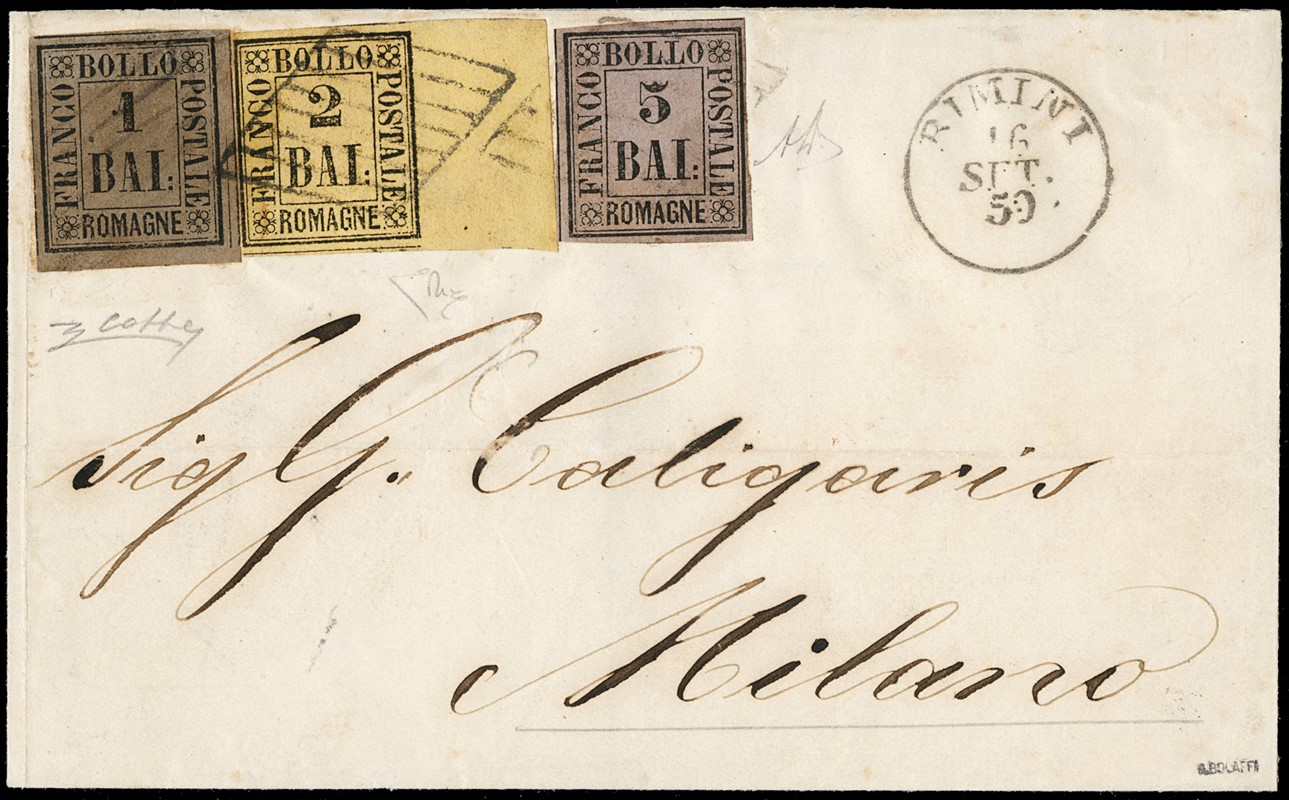 BOLLO
FRANCO
1
BAI:
POSTALE
ROMAGNE
BOLLO
FRANCO
2
BAI:
POSTALE
ROMAGNE
BOLLO
FRANCO
5
BAI:
POSTALE
ROMAGNE
RIMINI
16
SET.
59
Sig G. Caligaris
Milano
A.BOLAFFI